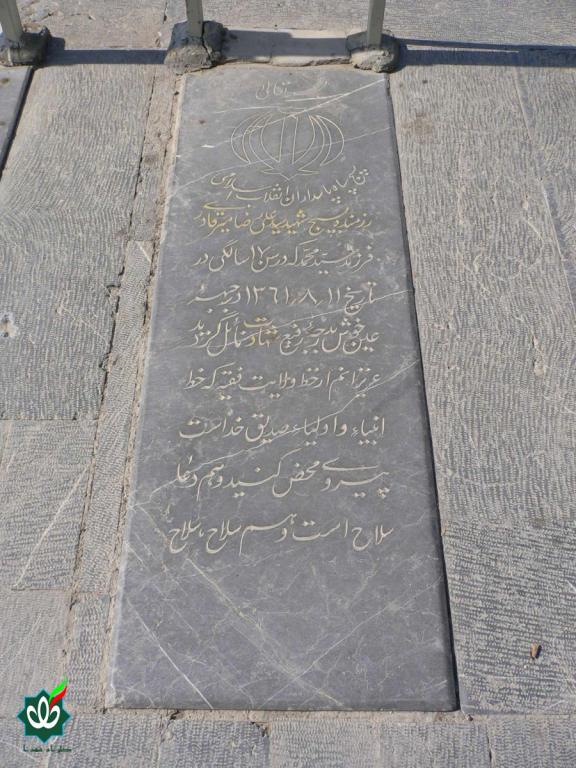 بسمه تعالی
سپاه پاسداران انقلاب اسلامی
رزمنده بسیج شهید سید علیرضا میرقادری
فرزند سید محمد که در سن ۱۷ سالگی در
تاریخ ۱۱ر۸ر۱۳۶۱ در جبهه
عین خوش بدرجه رفیع شهادت نائل گردید
عزیزانم از خط ولایت فقیه که خط
انبیاء و اولیاء صدیق خداست
پیروی محض کنید و هم دعا
سلاح است و هم سلاح، سلاح
گلزار شهدا